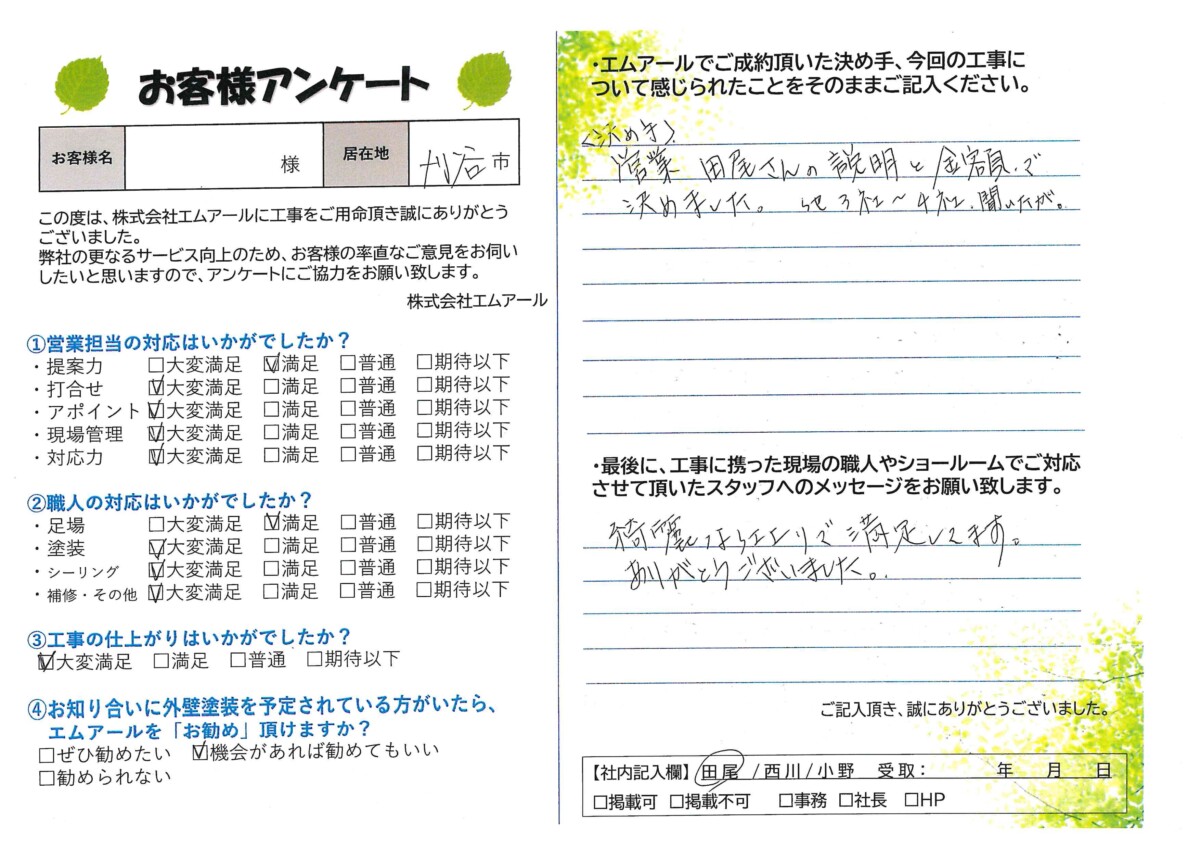 お客様アンケート
お客様名 様 居在地 刈谷市
この度は、株式会社エムアールに工事をご用命頂き誠にありがとう
ございました。
弊社の更なるサービス向上のため、お客様の率直なご意見をお伺い
したいと思いますので、アンケートにご協力をお願い致します。
株式会社エムアール
①営業担当の対応はいかがでしたか？
・提案力 □大変満足 ☑満足 □普通 □期待以下
・打合せ ☑大変満足 □満足 □普通 □期待以下
・アポイント ☑大変満足 □満足 □普通 □期待以下
・現場管理 ☑大変満足 □満足 □普通 □期待以下
・対応力 ☑大変満足 □満足 □普通 □期待以下
②職人の対応はいかがでしたか？
・足場 □大変満足 ☑満足 □普通 □期待以下
・塗装 ☑大変満足 □満足 □普通 □期待以下
・シーリング ☑大変満足 □満足 □普通 □期待以下
・補修・その他 ☑大変満足 □満足 □普通 □期待以下
③工事の仕上がりはいかがでしたか？
☑大変満足 □満足 □普通 □期待以下
④お知り合いに外壁塗装を予定されている方がいたら、
エムアールを「お勧め」頂けますか？
□ぜひ勧めたい ☑機会があれば勧めてもいい
□勧められない
・エムアールでご成約頂いた決め手、今回の工事に
ついて感じられたことをそのままご記入ください。
＜決め手＞
営業 田尾さんの説明と金額で
決めました。 他3社～4社、聞いたが。
・最後に、工事に携った現場の職人やショールームでご対応
させて頂いたスタッフへのメッセージをお願い致します。
綺麗な で満足してます。
ありがとうございました。
ご記入頂き、誠にありがとうございました。
【社内記入欄】 田尾 /西川/小野 受取： 年 月 日
□掲載可 □掲載不可 □事務 □社長 □HP